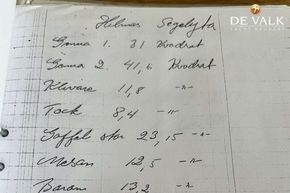 DE VALK
YACHT BROKERS
Helmas Segelyta
Genua 1. 31 Kvadrat
Genua 2. 41,6 Kvadrat
Klivare 11,8 -"-
Tock 8,4 -"-
Gaffel stor 23,15 -"-
Mesan 12,5 -"-
13,2 -"-